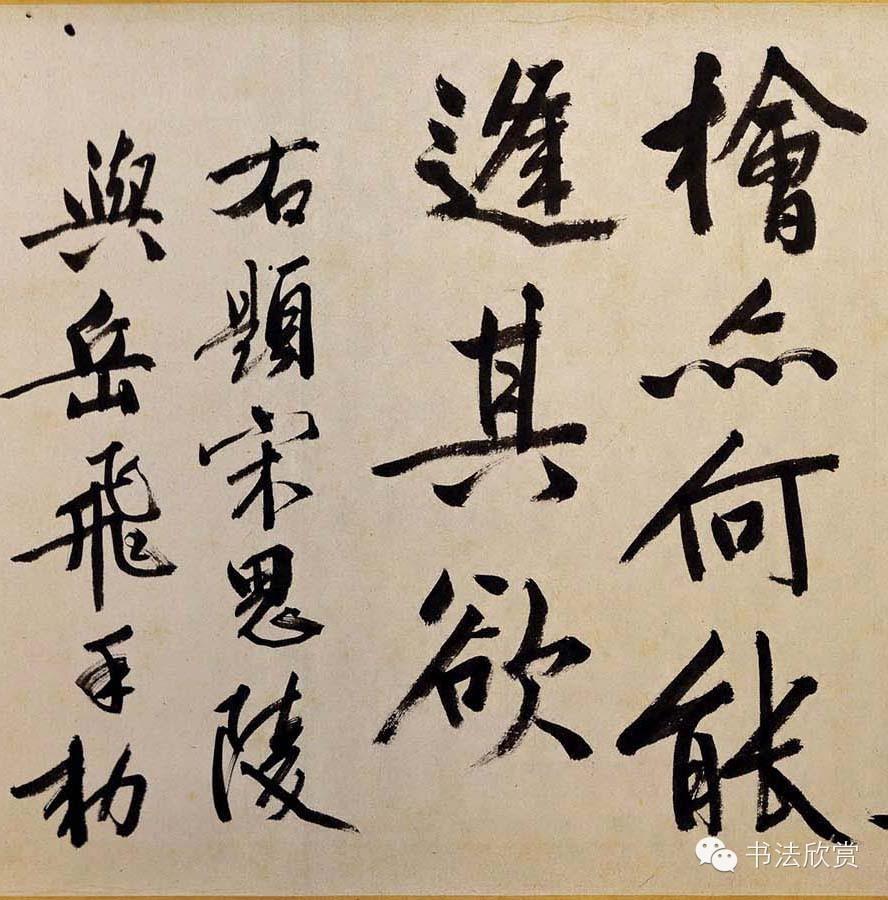 檜亦何能
逢其欲
右題宋思陵
與岳飛手勅
书法欣赏